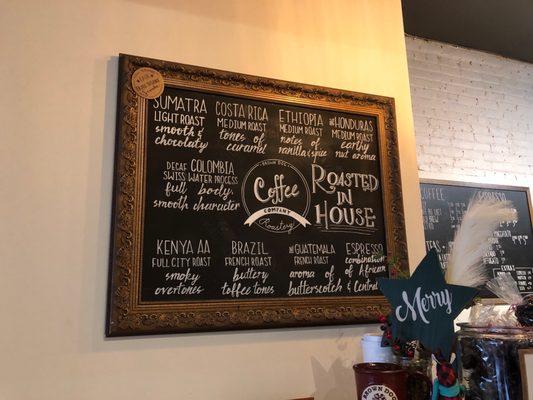 SUMATRA
LIGHT ROAST
smooth &
chocolaty
COSTA RICA
MEDIUM ROAST
tones of
caramel
ETHIOPIA
MEDIUM ROAST
notes of
vanilla & spice
HONDURAS
MEDIUM ROAST
earthy
nut aroma
DECAF COLOMBIA
SWISS WATER PROCESS
full body,
smooth character
BROWN DOG
Coffee
COMPANY
Roastery
ROASTED
IN
HOUSE
KENYA AA
FULL CITY ROAST
smoky
overtones
BRAZIL
FRENCH ROAST
buttery
toffee tones
GUATEMALA
FRENCH ROAST
aroma of
butterscotch
ESPRESSO
combination
of African
& Central
COFFEE
ESPRESSO
Merry
BROWN DOG